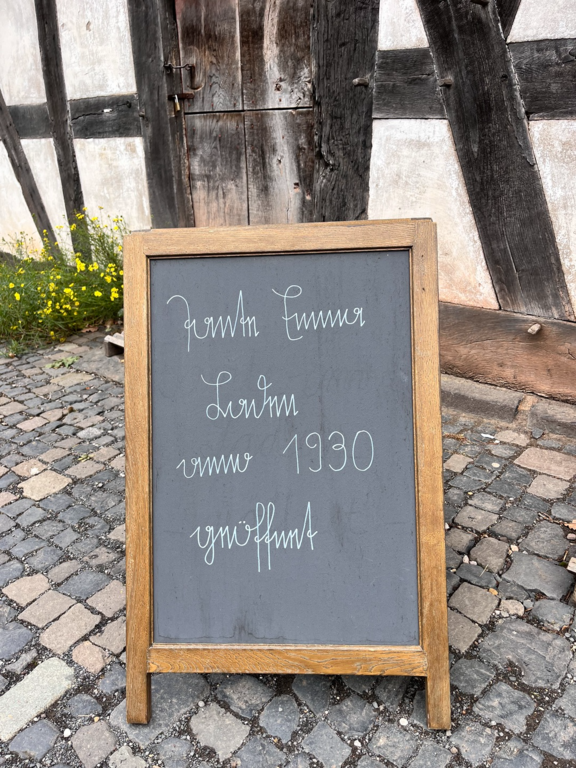 Tante Emma
Laden
anno 1930
geöffnet